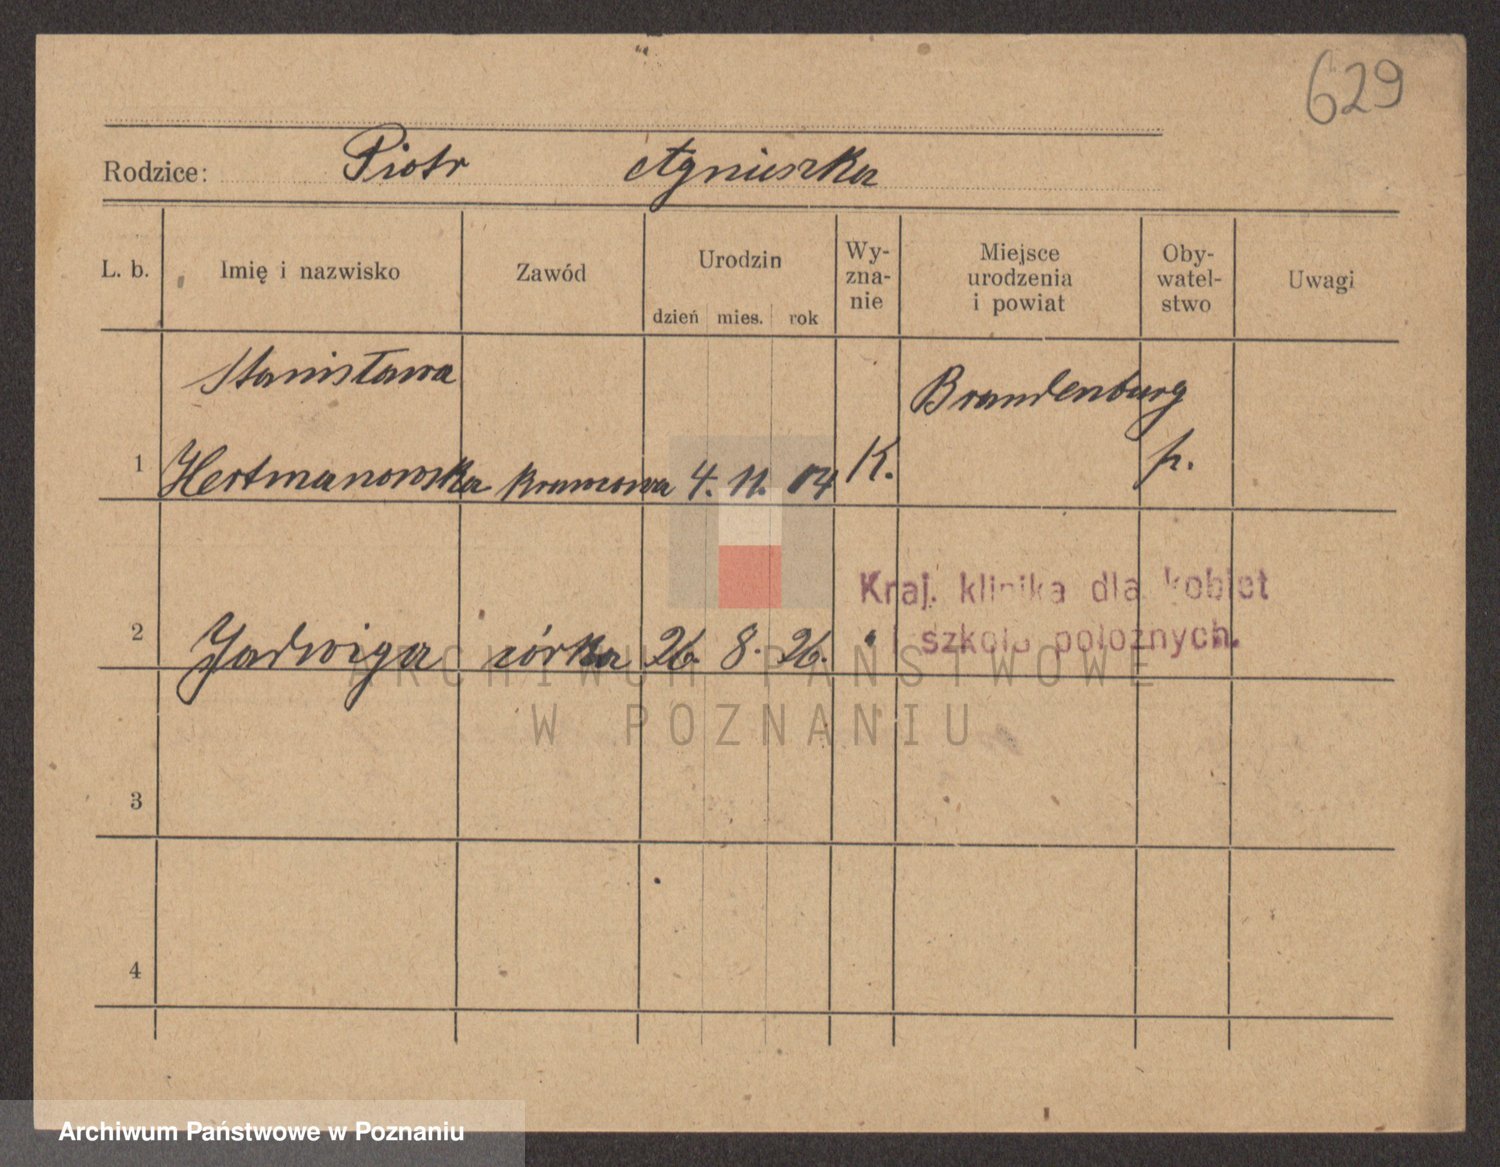 629
Rodzice: Piotr Agnieszka
L. b. Imię i nazwisko Zawód Urodzin dzień mies. rok Wy-zna-nie Miejsce urodzenia i powiat Oby-watel-stwo Uwagi
Stanisława Brandenburg
1 Hertmanowska krawcowa 4. 11. 04 K. p.
Kraj. klinika dla kobiet
i szkoła położnych.
2 Jadwiga córka 26. 8. 26.
ARCHIWUM PAŃSTWOWE
W POZNANIU
3
4
Archiwum Państwowe w Poznaniu